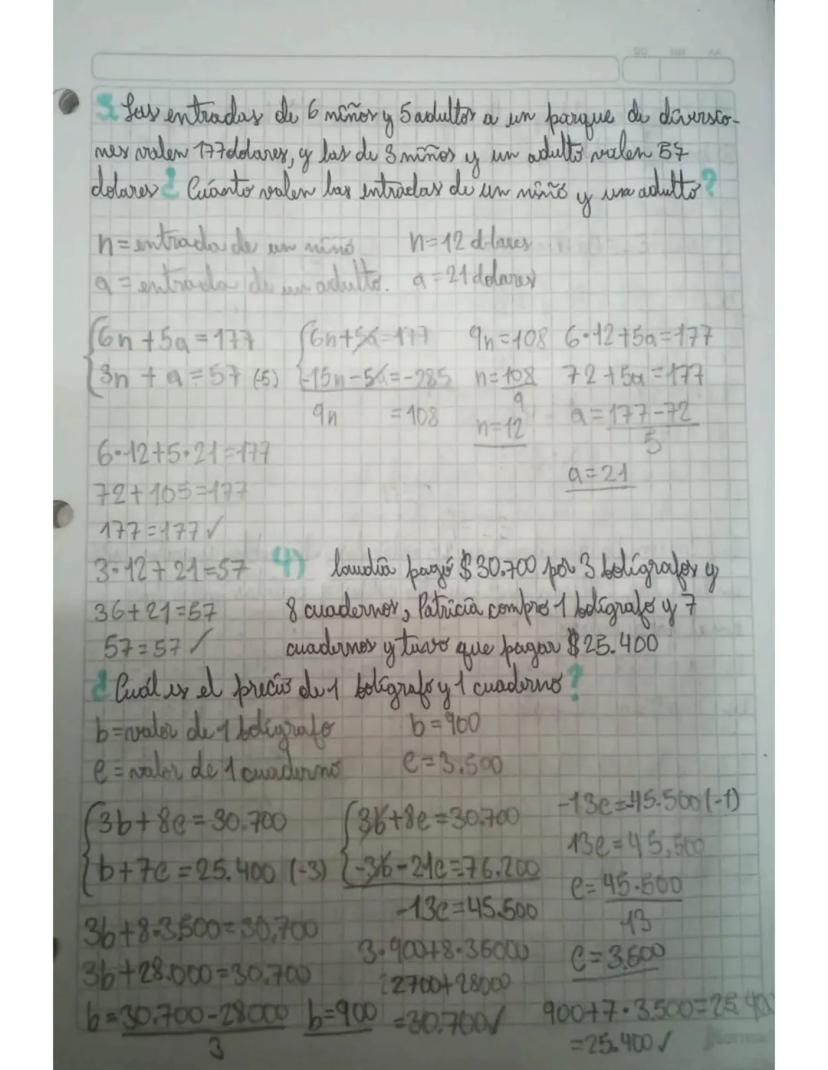 5. Las entradas de 6 niños y 5 adultos a un parque de diversio-
nes valen 177 dolares, y las de 3 niños y un adulto valen 57
dolares ¿Cuánto valen las entradas de un niño y un adulto?
n = entrada de un niño n = 12 dolares
a = entrada de un adulto. a = 21 dolares
6n + 5a = 177 6n + 5a = 177 9n = 108 6·12 + 5a = 177
3n + a = 57 (-5) -15n - 5a = -285 n = 108/9 72 + 5a = 177
9n = 108 n = 12 a = 177-72/5
6·12 + 5·21 = 177 a = 21
72 + 105 = 177
177 = 177 ✓
3·12 + 21 = 57 4) laudia pagó $30.700 por 3 bolígrafos y
36 + 21 = 57 8 cuadernos, Patricia compro 1 bolígrafo y 7
57 = 57 ✓ cuadernos y tuvo que pagar $25.400
¿Cuál es el precio de 1 bolígrafo y 1 cuaderno?
b = valor de 1 bolígrafo b = 900
c = valor de 1 cuaderno c = 3.500
3b + 8c = 30.700 3b + 8c = 30.700 -13c = 45.500 (-1)
b + 7c = 25.400 (-3) -3b - 21c = 76.200 13c = 45,500
-13c = 45.500 c = 45.500/13
3b + 8·3.500 = 30,700 3·900 + 8·35000 c = 3.500
3b + 28.000 = 30.700 2700 + 28000
b = 30.700 - 28000/3 b = 900 = 30.700 ✓ 900 + 7·3.500 = 25.400
= 25.400 ✓
Norma